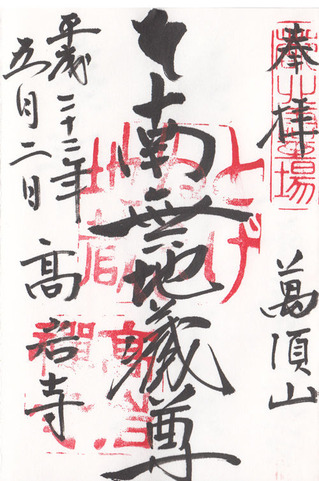 奉拝
萬頂山
南無地蔵尊
とげ
平成二十二年
五月二日
高岩寺